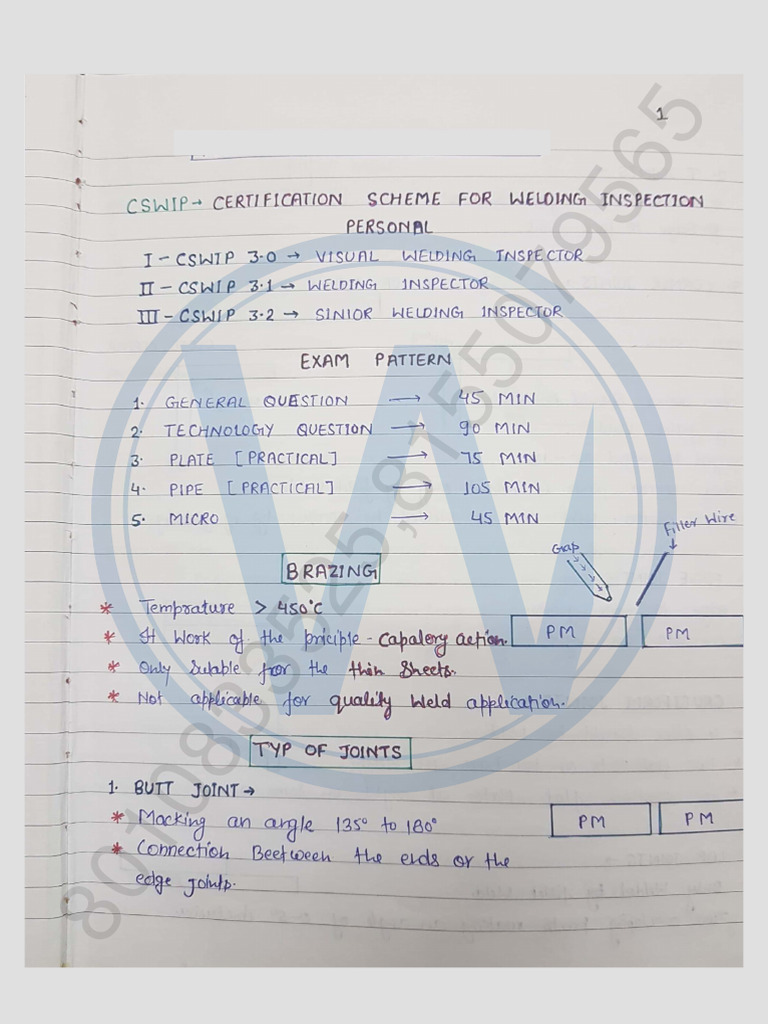 1
CSWIP → CERTIFICATION SCHEME FOR WELDING INSPECTION
PERSONAL
I - CSWIP 3.0 → VISUAL WELDING INSPECTOR
II - CSWIP 3.1 → WELDING INSPECTOR
III - CSWIP 3.2 → SINIOR WELDING INSPECTOR
EXAM PATTERN
1. GENERAL QUESTION → 45 MIN
2. TECHNOLOGY QUESTION → 90 MIN
3. PLATE [PRACTICAL] → 75 MIN
4. PIPE [PRACTICAL] → 105 MIN
5. MICRO → 45 MIN
BRAZING
Gap
Filler Wire
* Temprature > 450°C
* It Work of the priciple - Capalory action.
PM PM
* Only Sutable for the thin Sheets.
* Not applicable for quality Weld application.
TYP OF JOINTS
1. BUTT JOINT →
* Macking an angle 135° to 180°
PM PM
* Connection Beetween the ends or the
edge joints.
W